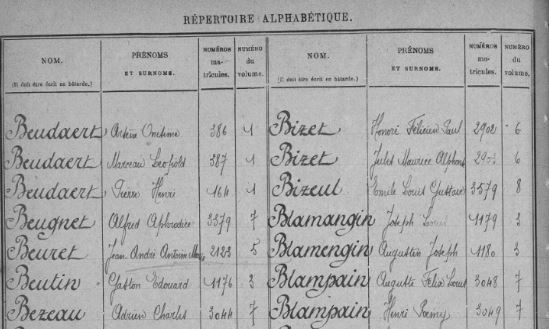 RÉPERTOIRE ALPHABÉTIQUE.
NOM. PRÉNOMS NUMÉROS NUMÉRO NOM. PRÉNOMS NUMÉROS NUMÉRO
ET SURNOMS. ma- du ET SURNOMS. ma- du
(Il doit être écrit en bâtarde.) tricules. volume. (Il doit être écrit en bâtarde.) tricules. volume.
Beudaert 386 1 Bizet Honoré Félicien Paul 2902 6
Beudaert Marceau Léopold 387 1 Bizet Jules Maurice Alphons 6
Beudaert Pierre Henri 164 1 Bizeul Emile Louis Gustave 3579 8
Beugnet Alfred Aphrodice 3379 7 Blamangin Joseph Louis 1179 3
Beuret Jean André Antoine 2123 5 Blamengin Augustin Joseph 1180 3
Beutin Gaston Edouard 1176 3 Blampain Auguste Félix Louis 3048 7
Bezeau Adrien Charles 3044 7 Blampain Henri Rémy 3049 7